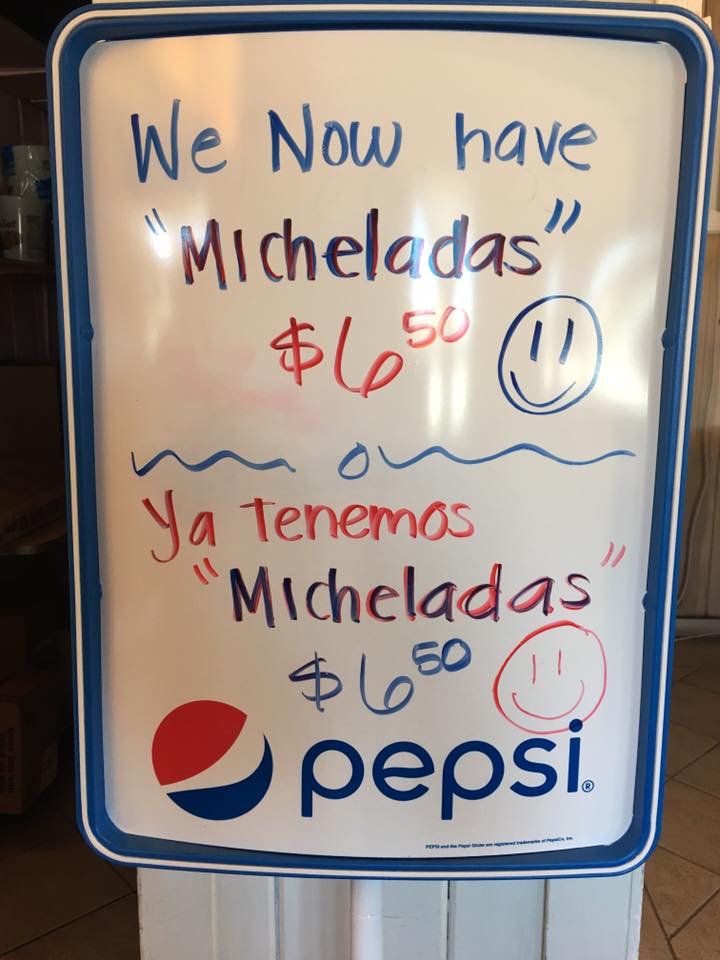 We Now have
"Micheladas"
$6.50
Ya Tenemos
"Micheladas"
$6.50
pepsi®
PEPSI and the Pepsi Globe are registered trademarks of PepsiCo, Inc.